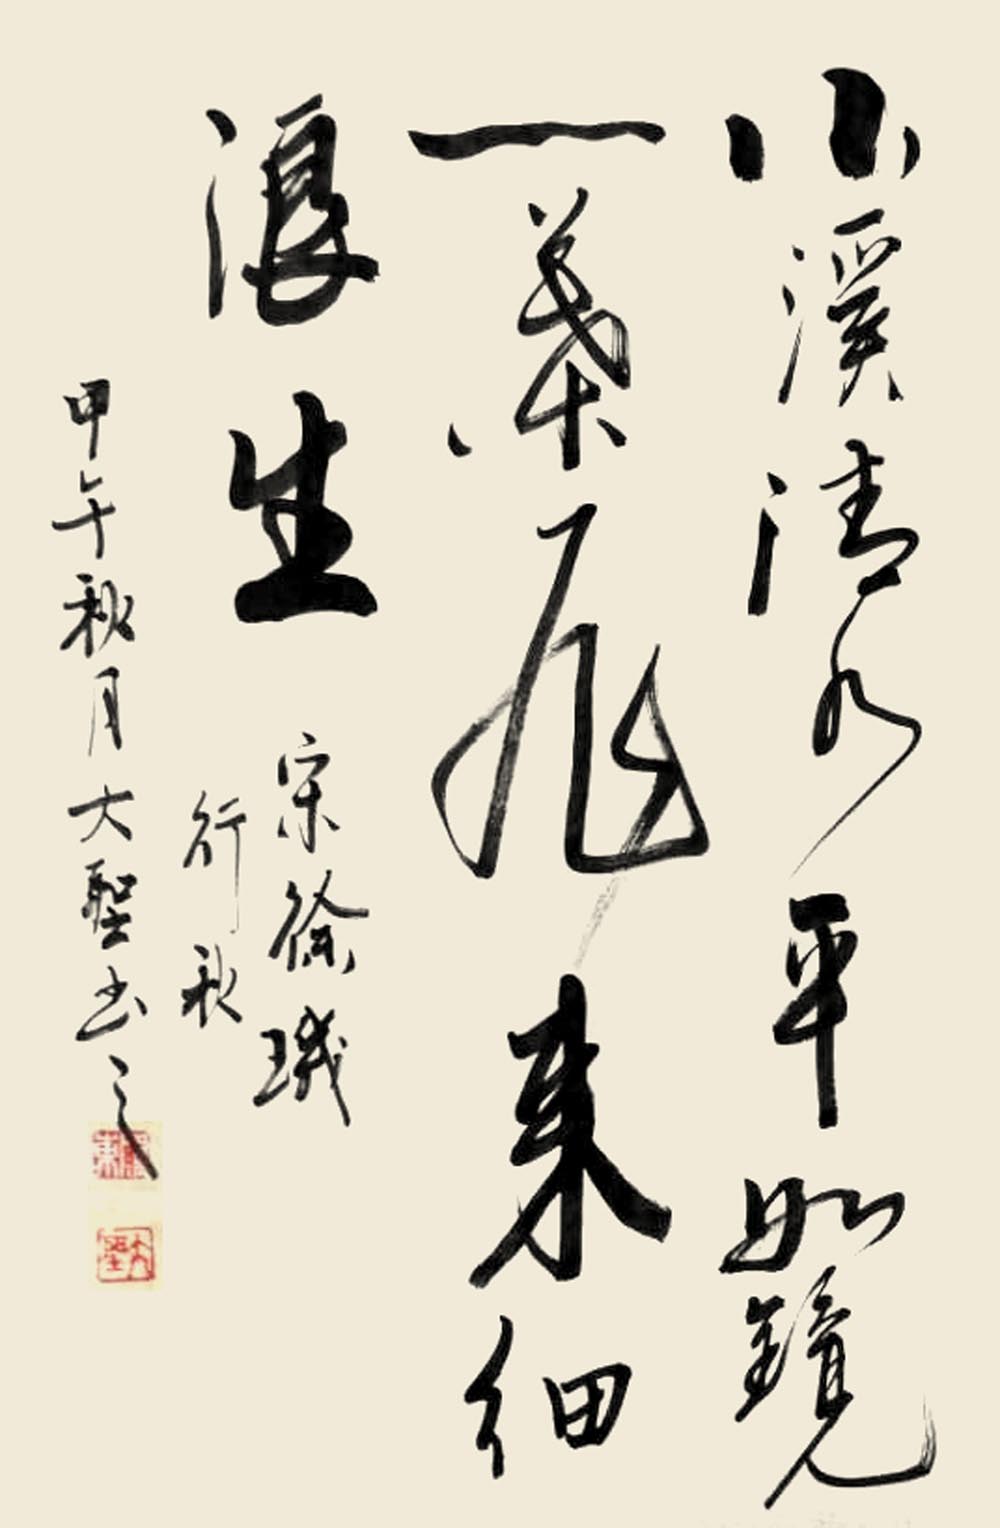 小溪清水平如鏡
一葉飛來細
浪生
宋徐璣
行秋
甲午秋月大聖书之